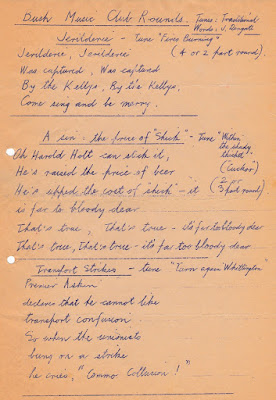 Bush Music Club Rounds. Tunes: Traditional
Words: J. Dengate
Jerilderie - tune "Fire's Burning"
Jerilderie, Jerilderie (4 or 2 part round).
Was captured, Was captured
By the Kellys, By the Kellys,
Come sing and be merry.
A sin = the price of "Shick" - tune "Within the shady thicket"
Oh Harold Holt can stick it, (cuckoo)
He's raised the price of beer
He's upped the cost of "shick" - it (2 or 3 part round)
is far to bloody dear
That's true, that's true - its far too bloody dear
That's true, that's true - it's far too bloody dear
Transport Strikes - tune "Turn again Whittington"
Premier Askin
declares that he cannot like
transport confusion.
So when the unionists
bung on a strike
he cries, "Commo Collusion!"